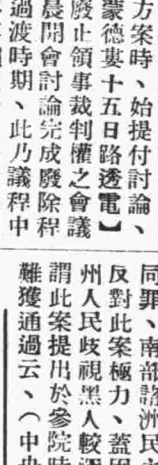 方案時、始提付討論、
蒙德婁十五日路透電】
廢止領事裁判權之會議
晨開會討論完成廢除程
過渡時期、此乃議程中
同罪、南部諸洲民
反對此案極力、蓋
州人民歧視黑人較
謂此案提出於參院
難獲通過云、（中央